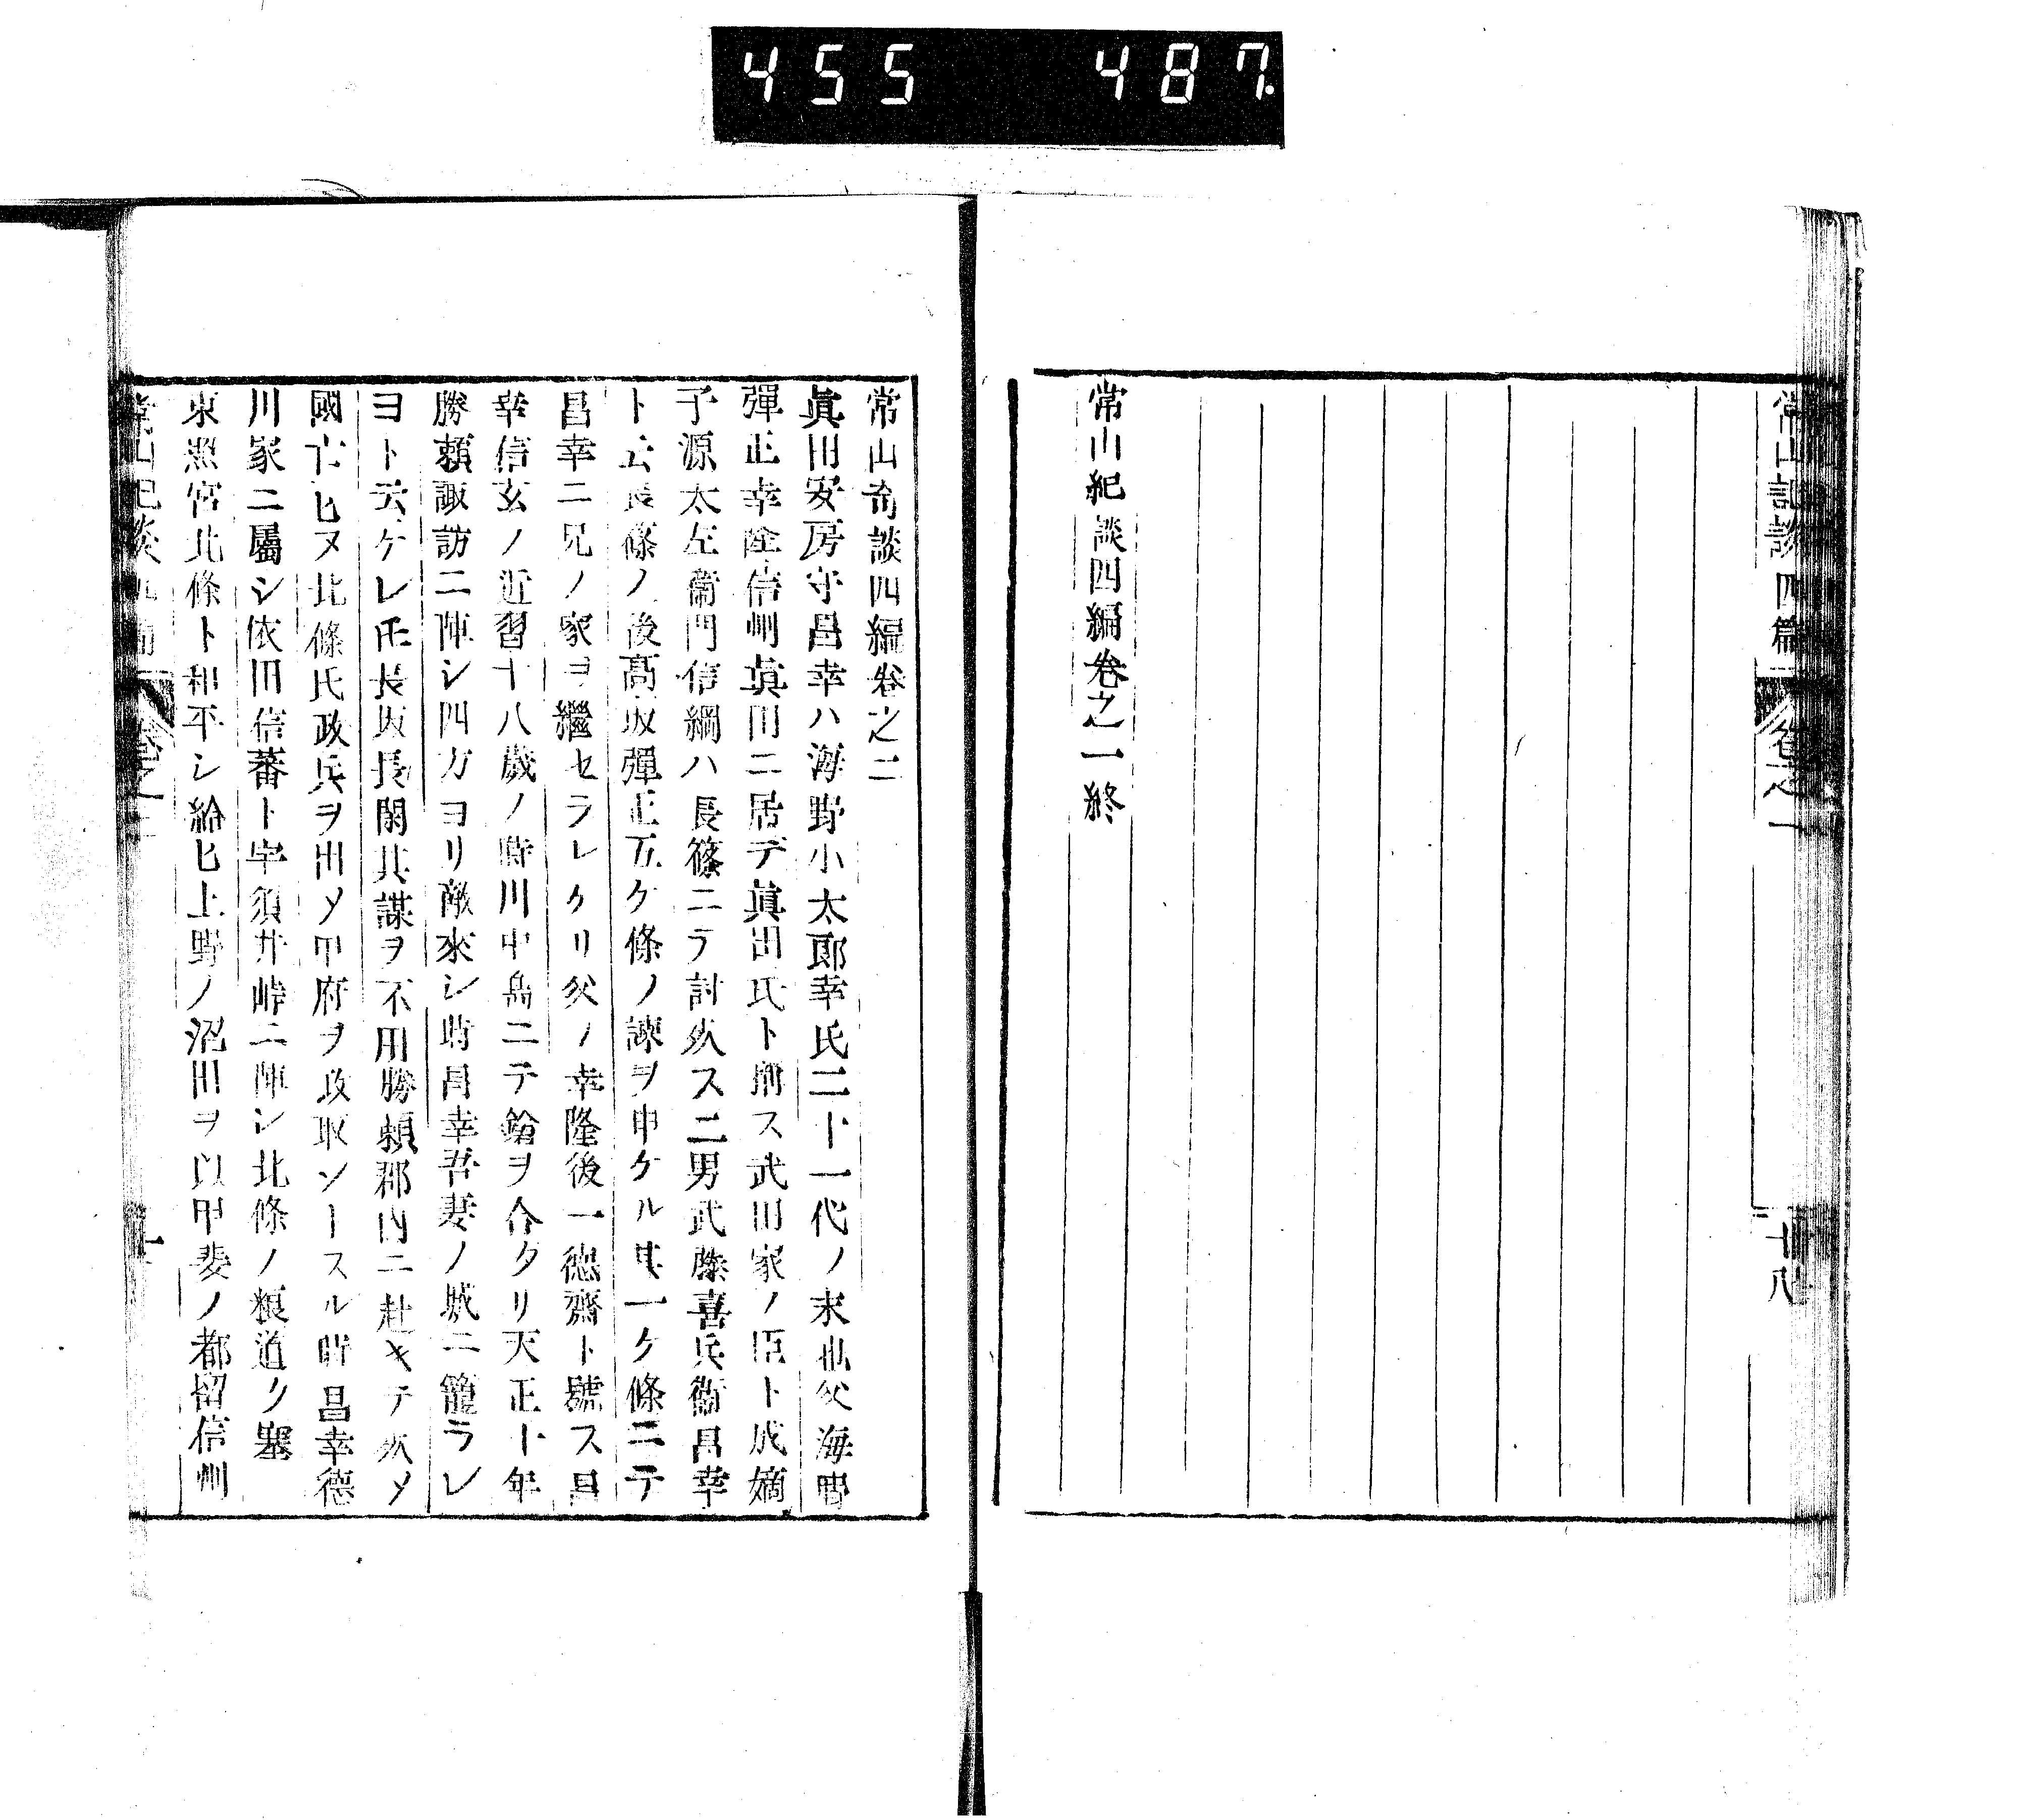 455 487.
常山記談 四篇 卷之一 十八
常山紀談四編卷之一終
常山奇談四編卷之二
眞田安房守昌幸ハ海野小太郎幸氏二十一代ノ末也父海野
彈正幸隆信州眞田ニ居テ眞田氏ト稱ス武田家ノ臣ト成嫡
子源太左衞門信綱ハ長篠ニテ討死ス二男武藤喜兵衞昌幸
ト云長篠ノ後髙坂彈正五ケ條ノ諫ヲ申ケル其一ケ條ニテ
昌幸二兄ノ家ヲ繼セラレケリ父ノ幸隆後一德齋ト號ス昌
幸信玄ノ近習十八歲ノ時川中島ニテ鎗ヲ合タリ天正十年
勝賴諏訪ニ陣シ四方ヨリ敵來シ時昌幸吾妻ノ城ニ籠ラレ
ヨト云ケレ𪜈長坂長閑其謀ヲ不用勝賴郡内ニ赴キテ死メ
國亡ヒヌ北條氏政兵ヲ出メ甲府ヲ攻取ントスル時昌幸德
川家ニ屬シ依田信蕃ト宇須井峠ニ陣シ北條ノ粮道ク塞
東照宮北條ト和平シ給ヒ上野ノ沼田ヲ以甲斐ノ都留信州